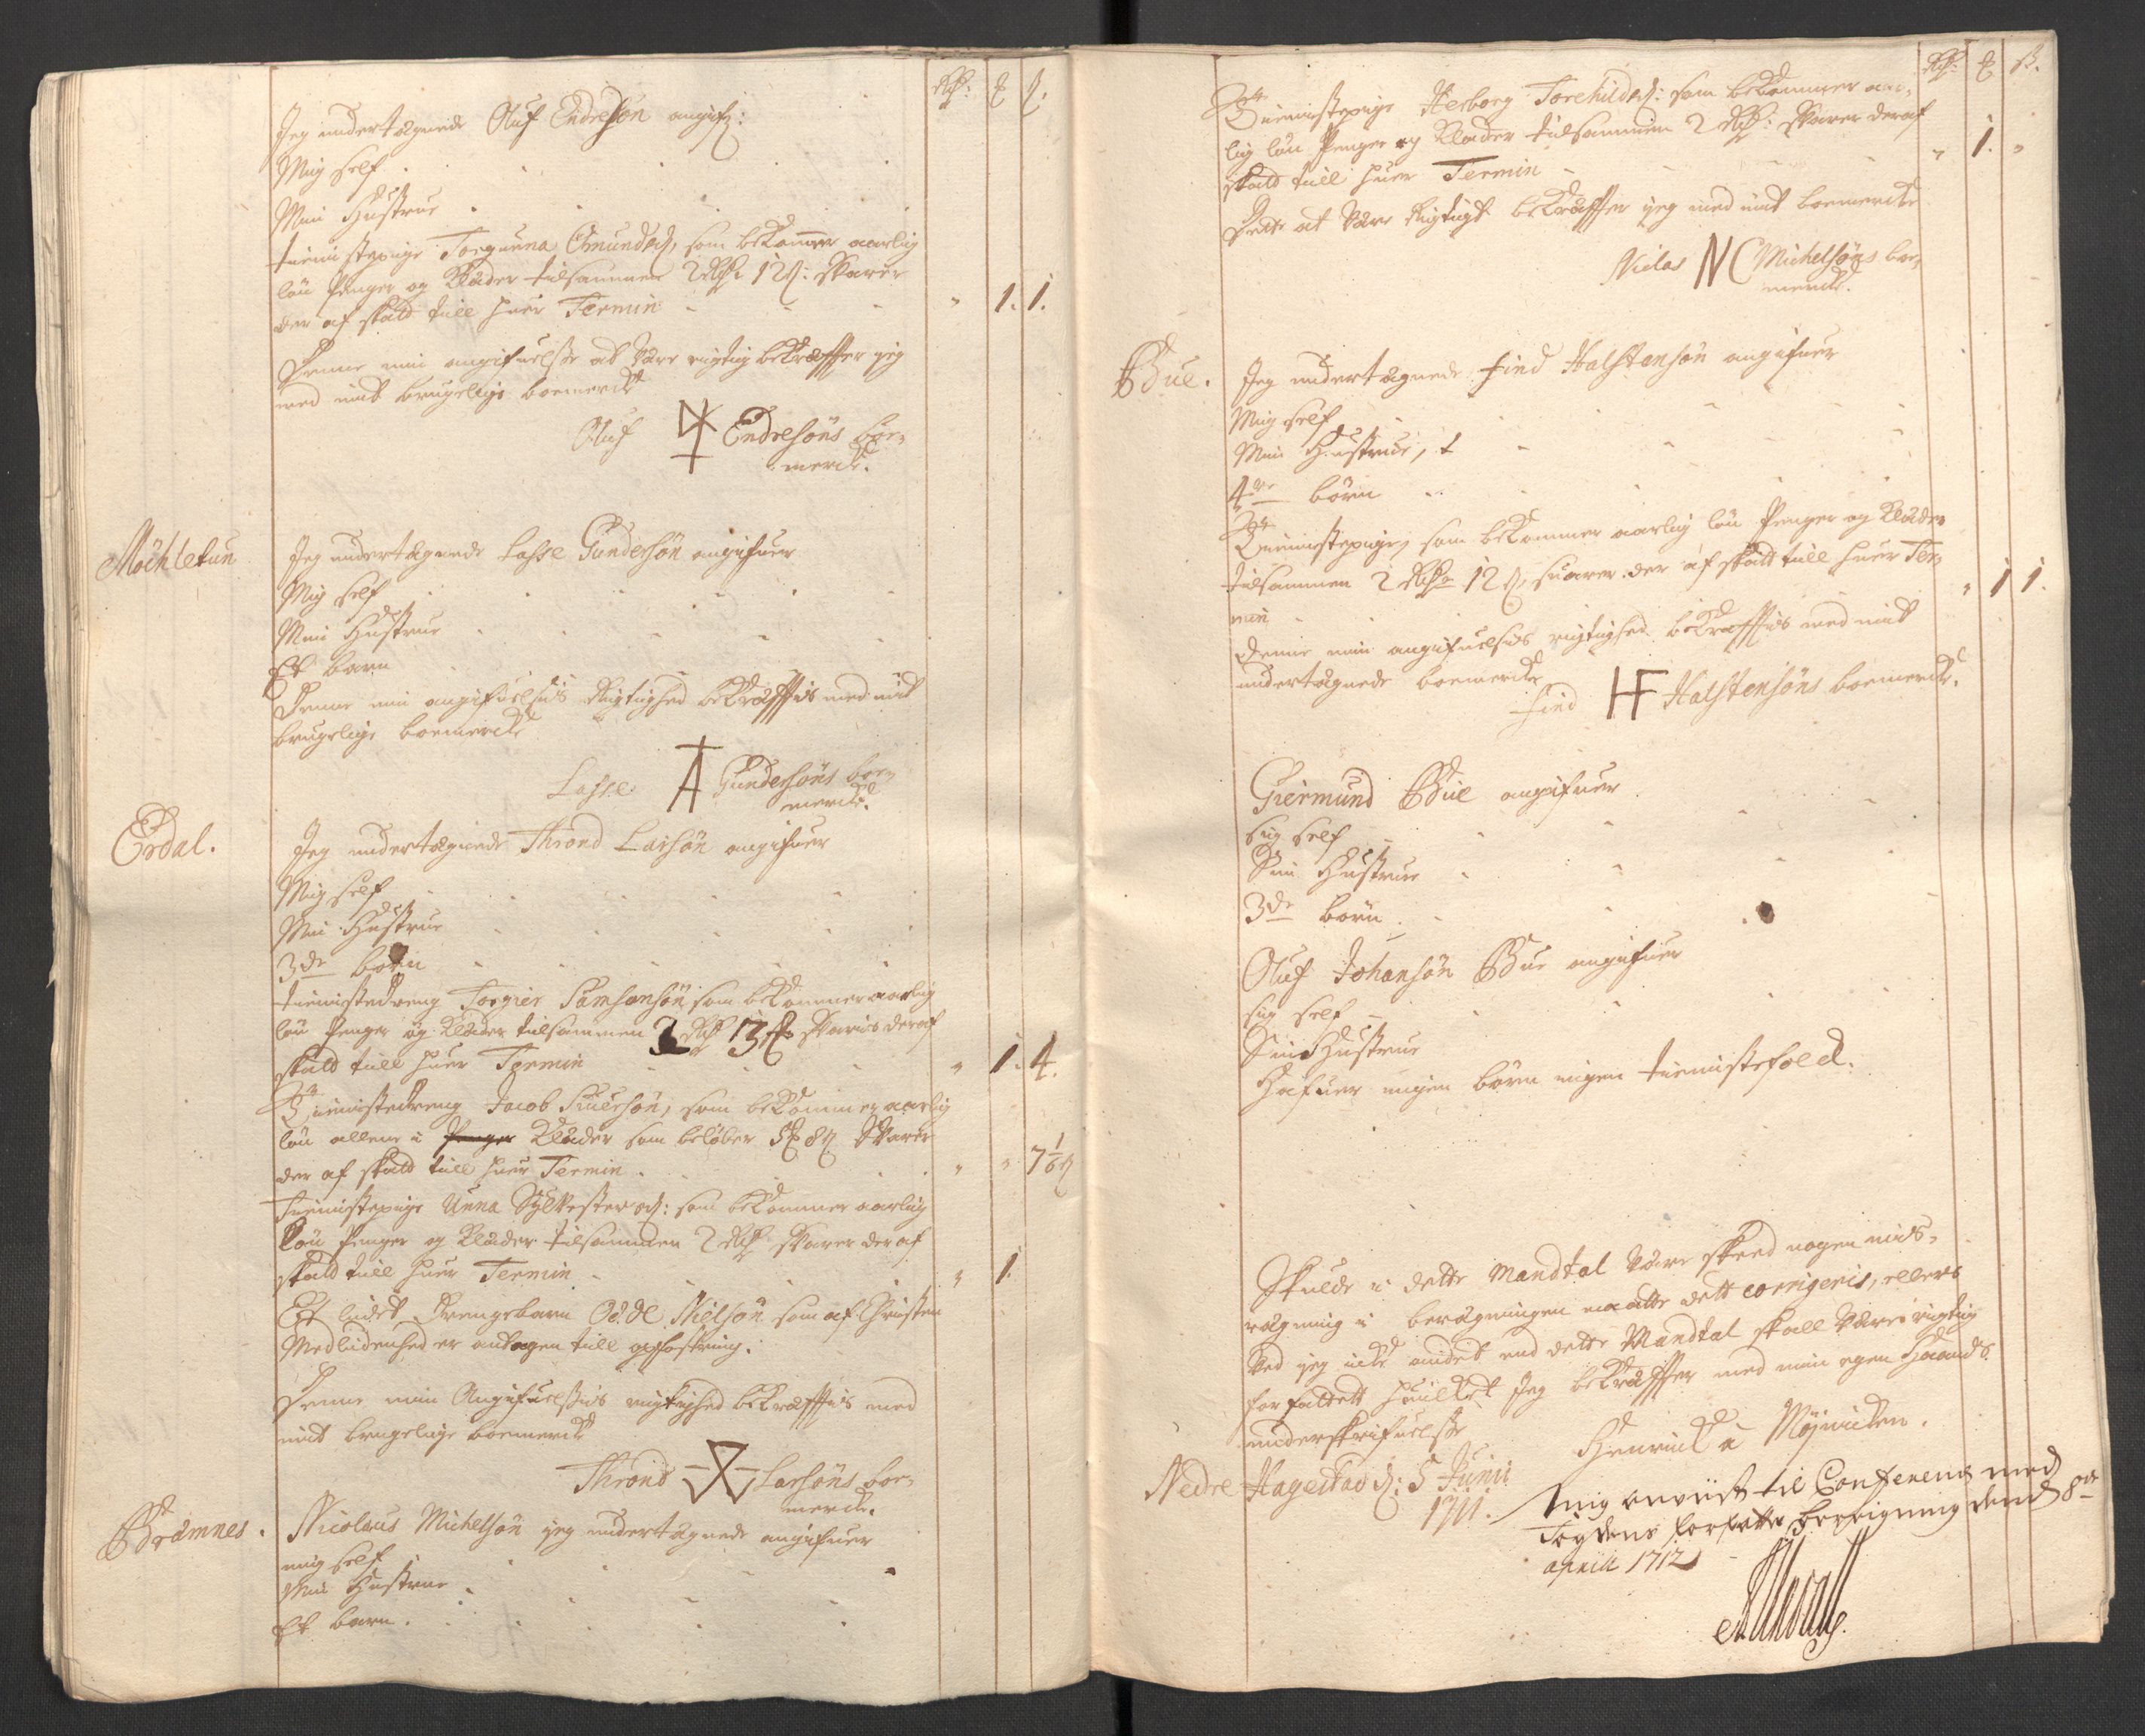 Rdr: ₰ ß.
Jeg undertegnede Oluf Endresøn angifr:
Mig self
Min Hustrue
tienistepige Torgunna Omundsd, som bekommer aarlig
løn Penger og Klæder tilsammen 2 Rdr 12 ß: Svarer
der af skatt till huer Termin - - - " 1. 1.
Denne min angifuelse at være rigtig bekræffter jeg
med mit brugelige boemercke
Oluf Endresøns boe-
mercke.
Möchletun
Jeg undertegnede Lasse Gundersøn angifuer
Mig self
Min Hustrue
Et barn
Denne min angifuelses Rigtighed bekræfftis med mit
brugelige boemercke
Lasse A Gundersøns boe-
mercke.
Erdal.
Jeg undertegnede Thrond Larsøn angifuer
Mig self
Min Hustrue
3de børn
tienistedreng Torgier Samsonsøn som bekommer aarlig
løn Penger og Klæder tilsammen 2 Rdr 13 ß Svaris deraf
skatt till huer Termin " 1. 4.
Tienistedreng Jacob Siuersøn, som bekommer aarlig
løn allene i Penger Klæder som beløber 5 ₰ 8 ß Svarer
der af skatt till huer Termin. " " 7 1/6 ß
Tienistepige Unna Sylvestersd: som bekommer aarlig
Løn Penger og Klæder tilsammen 2 Rdr Svarer der af
skatt till huer Termin " 1.
Et lidet Drengebarn Odde Nielsøn som af Christen
Medlidenhed er antagen till opfostring.
Denne min Angifuelses rigtighed bekræfftis med
mit brugelige boemercke
Thrond Larsøns boe-
mercke.
Bramnes.
Nicolaus Michelsøn jeg undertegnede angifuer
mig self
Min Hustrue
Et barn.
Rdr: ₰ ß.
Tienistepige Herborg Torchildsd: som bekommer aar-
lig løn Penger og Klæder tilsammen 2 Rdr: Svarer deraf
skatt till huer Termin " 1. "
Dette at være Rigtigt bekræffter jeg med mit boemercke
Niclas NC Michelsøns boe-
mercke.
Bue.
Jeg undertegnede Find Halstensøn angifuer
Mig self
Min Hustrue,
4re børn
Tienistepige, som bekommer aarlig løn Penger og Klæder
tilsammen 2 Rdr 12 ß, suarer der af skatt till huer Ter-
min " 1 1.
Denne min angifuelses rigtighed bekræfftis med mit
undertegnede boemercke
Find HF Halstensøns boemercke.
Giermund Bue angifuer
sig self
Sin Hustrue
3de børn
Oluf Johansøn Bue angifuer
sig self
Sin Hustrue
Hafuer ingen børn ingen tienistefolck.
Skulde i dette Mandtal være skeed nogen mis-
regning i beregningen maatte dett corrigeris, ellers
ved jeg icke andet end dette Mandtal skall være rigtig
forfattet huilket jeg bekræffter med min egen Haands
underskrifuelse
Nedre Hagestad d: 5 Junii
1711.
Henrick Møjnicken.
Mig anviist til Conference med
Fogdens forfatte beregning dend 8de
aprill 1712